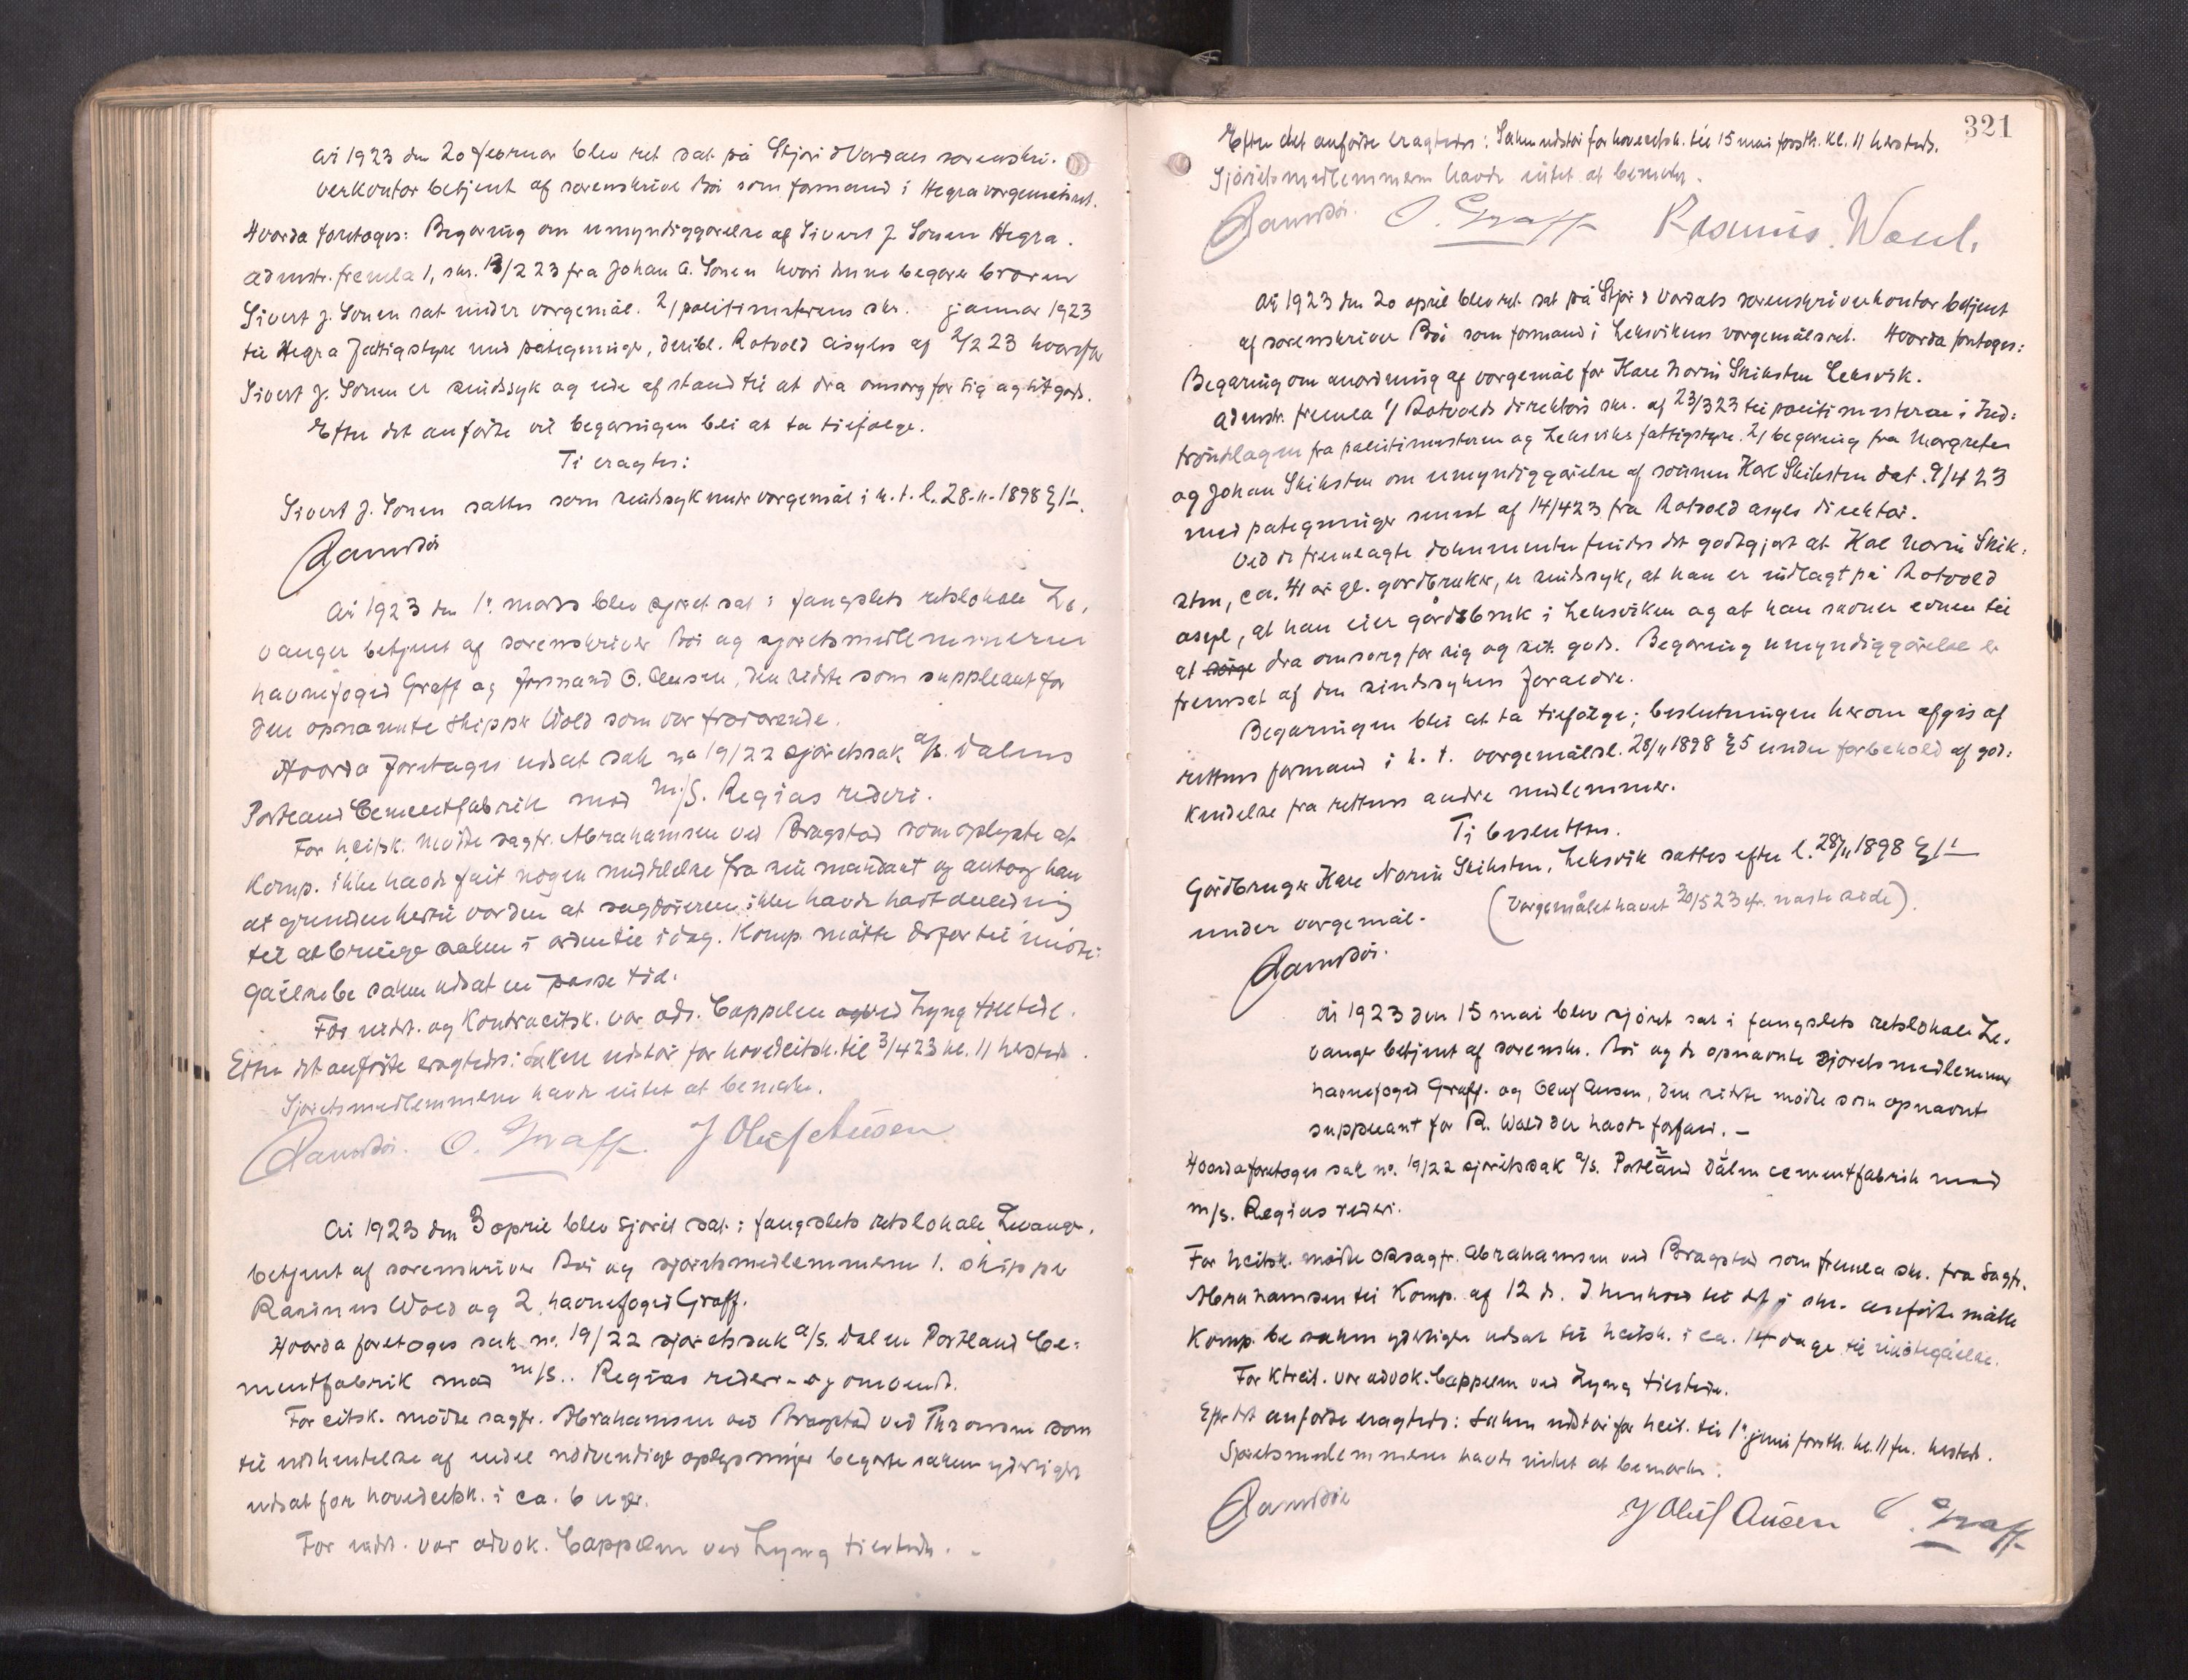 År 1923 den 20 februar blev ret sat på Stjør & Værdals sorenskri-
verkontor betjent af sorenskriver Bøi som formand i Hegra vergemålsret.
Hvorda foretoges: Begæring om umyndiggørelse af Sivert J. Sonen Hegra.
Adminstr. fremla 1, skr. 13/2 23 fra Johan A. Sonen hvori denne begærer broren
Sivert J. Sonen sat under vergemål. 2/ politimesterens skr. januar 1923
til Hegra Fattigstyre med påtegninger, deribl. Rotvold asyls af 2/2 23 hvorefter
Sivert J. Sonen er sindssyk og ude af stand til at dra omsorg for sig og sit gods.
Efter det anførte vil begæringen bli at ta tilfølge.
Ti eragtes:
Sivert J. Sonen sættes som sindssyk under vergemål i h. t. l. 28-11-1898 § 1 1.
År 1923 den 1. mars blev sjøret sat i fængslets retslokale Le-
vanger betjent af sorenskriver Bøi og sjøretsmedlemmerne
havnefoged Graff og formand O. Ausen, den sidste som suppleant for
den opnævnte skipper Wold som var fraværende.
Hvorda foretages udsat sak no 19/22 sjøretssak a/s. Dalens
Portland Cementfabrik mod m/s. Regias rederi.
For h.citsk. mødte sagfr. Abrahamsen ved Bragstad som oplyste at
Komp. ikke havde fåit nogen meddelelse fra sin mandant og antog han
at grunden hertil var den at sagføreren ikke havde hat anledning
til at bringe saken i orden til idag. Komp. måtte derfor til imøte-
gåelse be saken udsat en passe tid.
For indst. og Kontracitsk. var adv. Cappelen ved Lyng tilstede.
Efter det anførte eragtedes: Saken utstår for hovedcitsk. til 3/4 23 kl. 11 hersteds.
Sjøretsmedlemmene havde intet at bemærke.
O. Graff. J Oluf Ausen
År 1923 den 3 april blev sjøret sat i fængslets retslokale Levanger.
betjent af sorenskriver Bøi og sjøretsmedlemmerne 1. skipper
Rasmus Wold og 2, havnefoged Graff.
Hvorda foretoges sak no. 19/22 sjøretssak a/s. Dalen Portland Ce-
mentfabrik mod m/s.. Regias rederi - og omvendt.
For citsk. mødte sagfr. Abrahamsen ved Bragstad ved Thomsen som
til indhentelse af endel nødvendige oplysninger begærte saken yderligere
udsat for hovedcitsk. i ca. 6 uger.
For indst. var advok. Cappelen ved Lyng tilstede. -
321
Efter det anførte eragtedes: Saken utstår for hovedcitsk. til 15 mai førstk. kl. 11 hersteds.
Sjøretsmedlemmerne havde intet at bemærke.
O. Graff Rasmus Wold.
År 1923 den 20 april blev ret sat på Stjør & Værdals sorenskriverkontor betjent
af sorenskriver Bøi som formand i Leksvikens vergemålsret. Hvorda foretoges:
Begæring om anordning af vergemål for Kare Norin Skiksten Leksvik.
Adminstr. fremla 1/ Rotvolds direktørs skr. af 23/3 23 til politimesteren i Ind-
trøndelagen fra politimesteren og Leksviks fattigstyre. 2/ begæring fra Margrete
og Johan Skiksten om umyndiggørelse af sønnen Kare Skiksten dat. 9/4 23
med pategninger senest af 14/4 23 fra Rotvold asyls direktør.
Ved de fremlagte dokumenter findes det godtgjort at Kare Norin Skik-
sten, ca. 41 år gl. gårdbruker, er sindssyk, at han er indlagt på Rotvold
asyl, at han eier gårdsbruk i Leksviken og at han savner evnen til
at sørge dra omsorg for sig og sit gods. Begæring umyndiggørelse er
fremsat af den sindssykes forældre.
Begæringen blir at ta tilfølge; beslutningen herom afgis af
rettens formand i h. t. vergemålsl. 28/11 1898 § 5 under forbehold af god-
kjendelse fra rettens andre medlemmer.
Ti besluttes.
Gårdbruger Kare Norin Skiksten, Leksvik sættes efter l. 28/11 1898 § 1 1
under vergemål. (Vergemålet hævet 30/5 23 cfr. næste side).
År 1923 den 15 mai blev sjøret sat i fængslets retslokale Le-
vanger betjent af sorenskr. Bøi og de opnævnte sjøretsmedlemmer
havnefoged Graff. og Oluf Ausen, den sidste mødte som opnævnt
suppleant for R. Wold der havde forfald. -
Hvorda foretoges sak no. 19/22 sjøretssak a/s. Portland Dalen cementfabrik mod
m/s. Regias rederi.
For hcitsk. mødte sagfr. Abrahamsen ved Bragstad som fremla skr. fra Sagfr.
Abrahamsen til Komp. af 12 ds. I henhold til det i skr. anførte måtte
Komp. be saken yderligere udsat til hcitsk. i ca. 14 dage til imøtegåelse.
For ktrcit. var advok. Cappelen ved Lyng tilstede.
Efter det anførte eragtedes: Saken utstår for hcit. til 1. juni førstk. kl. 11 fm. hersteds.
Sjøretsmedlemmerne havde intet at bemærke.
J Oluf Ausen O. Graff